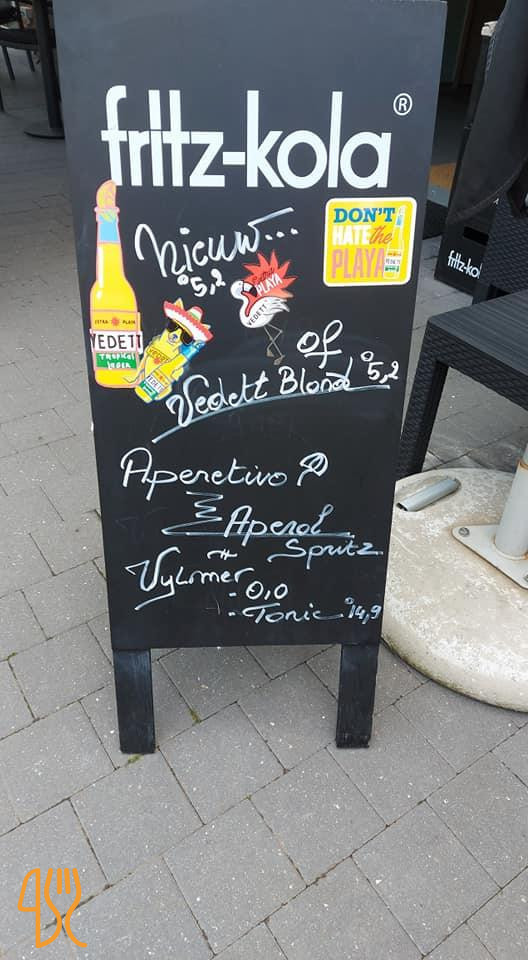 fritz-kola®
DON'T
HATE the
PLAYA
VEDETT
Nieuw...
°5,2
EXTRA
PLAYA
VEDETT
EXTRA PLAYA
VEDETT
TROPICAL
LAGER
VEDETT
of
Vedett Blond °5,2
Aperetivo
Aperol
Spritz
Vylmer
- 0,0
- Tonic °14,9
fritz-kol